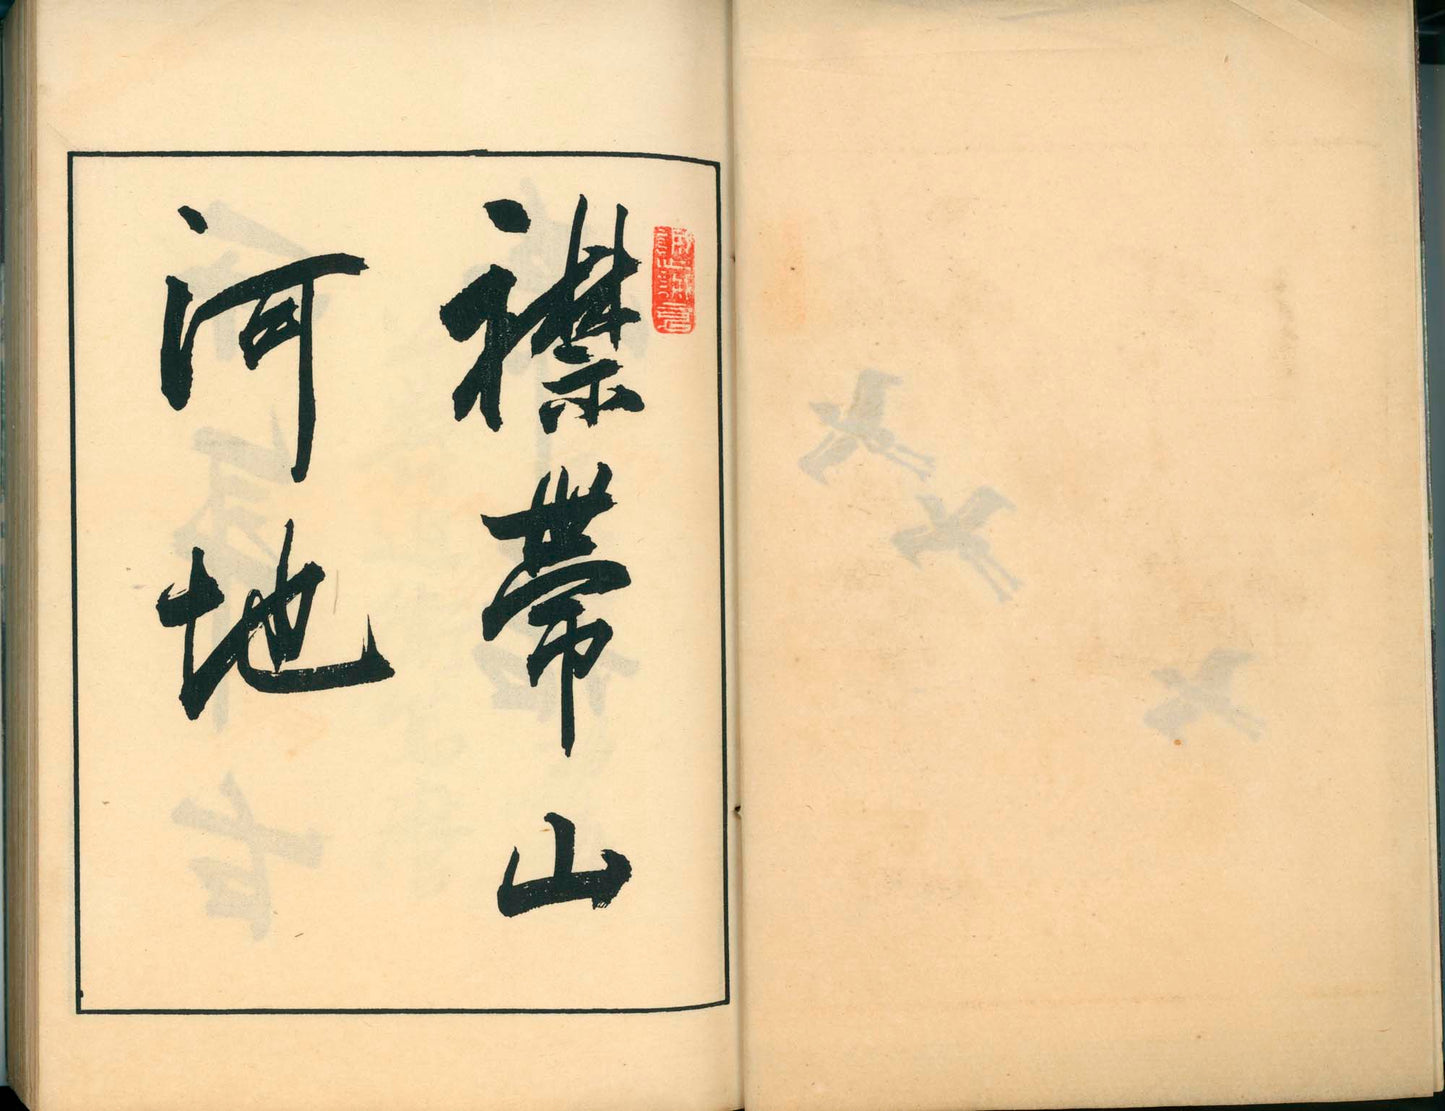 襟帶山
河地